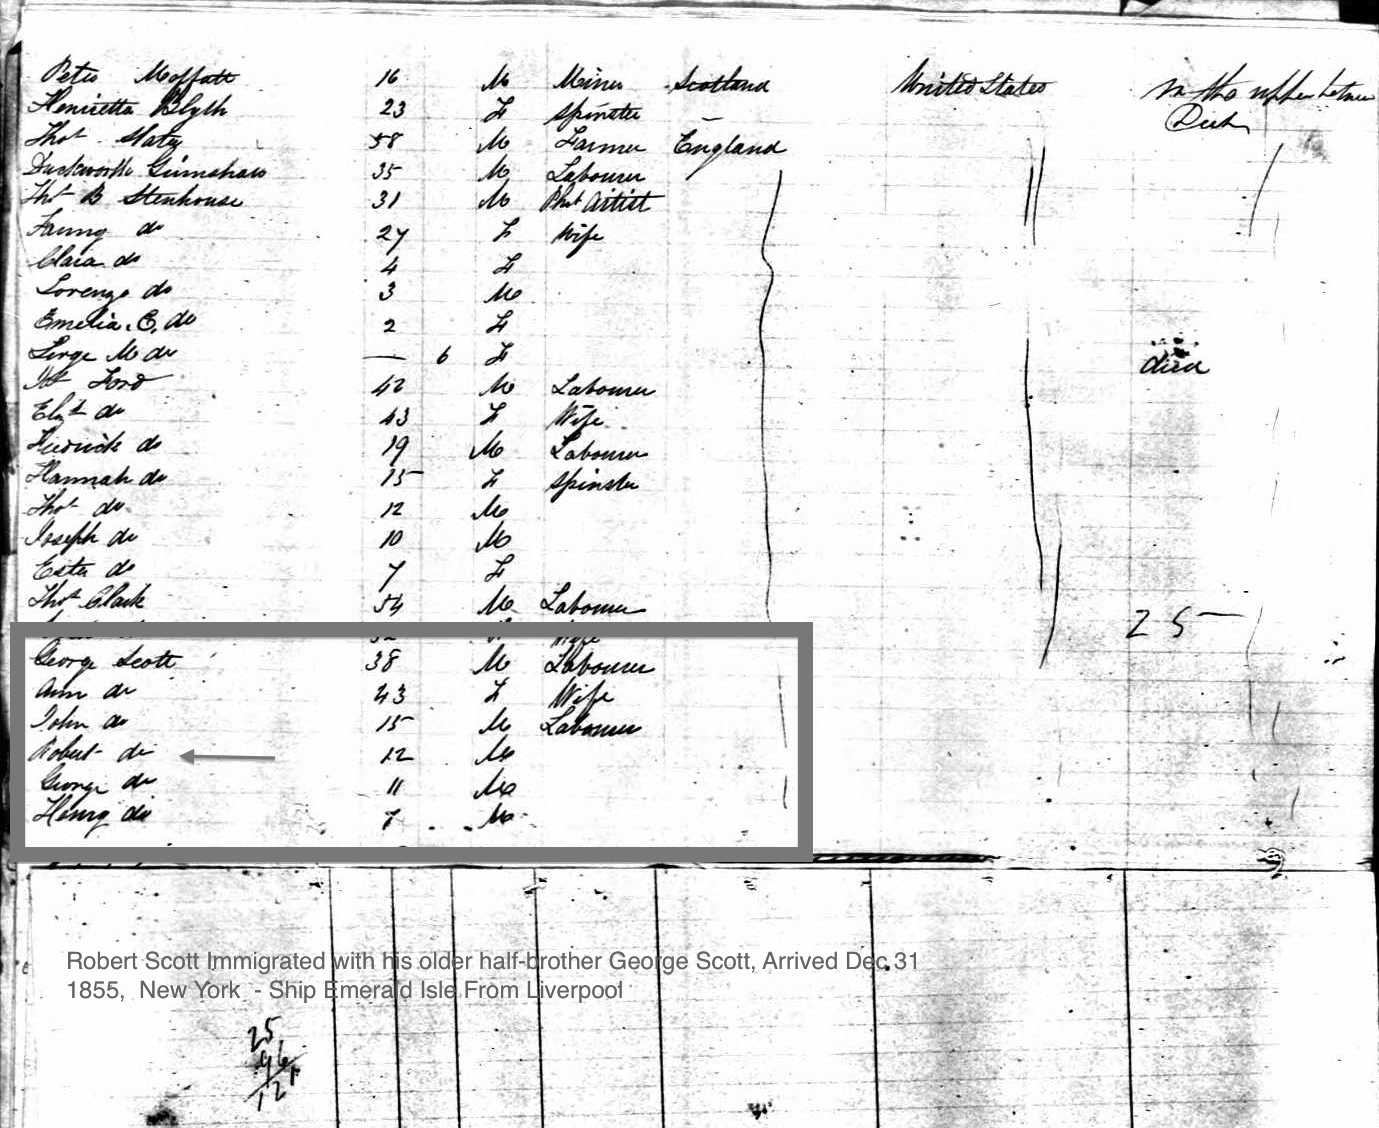 Peter Moffatt 16 M Miner Scotland United States in the upper between
Henrietta Blyth 23 F Spinster Deck
Thos Slater 58 M Farmer England
Duckworth Grimshaw 35 M Labourer
Thos B Stenhouse 31 M Artist
Fanny do 27 F Wife
Clara do 4 F
Lorenzo do 3 M
Emelia. E. do 2 F
M do — 6 F died
Ford 42 M Labourer
Elizt do 43 F Wife
do 19 M Labourer
Hannah do 15 F Spinster
Thos do 12 M
Joseph do 10 M
Ester do 7 F
Thos Clark 54 M Labourer
25 —
52 Wife
George Scott 38 M Labourer
Ann do 43 F Wife
John do 15 M Labourer
Robert do 12 M
George do 11 M
Henry do 7 M
Robert Scott Immigrated with his older half-brother George Scott, Arrived Dec 31
1855, New York - Ship Emerald Isle From Liverpool
25
96
121